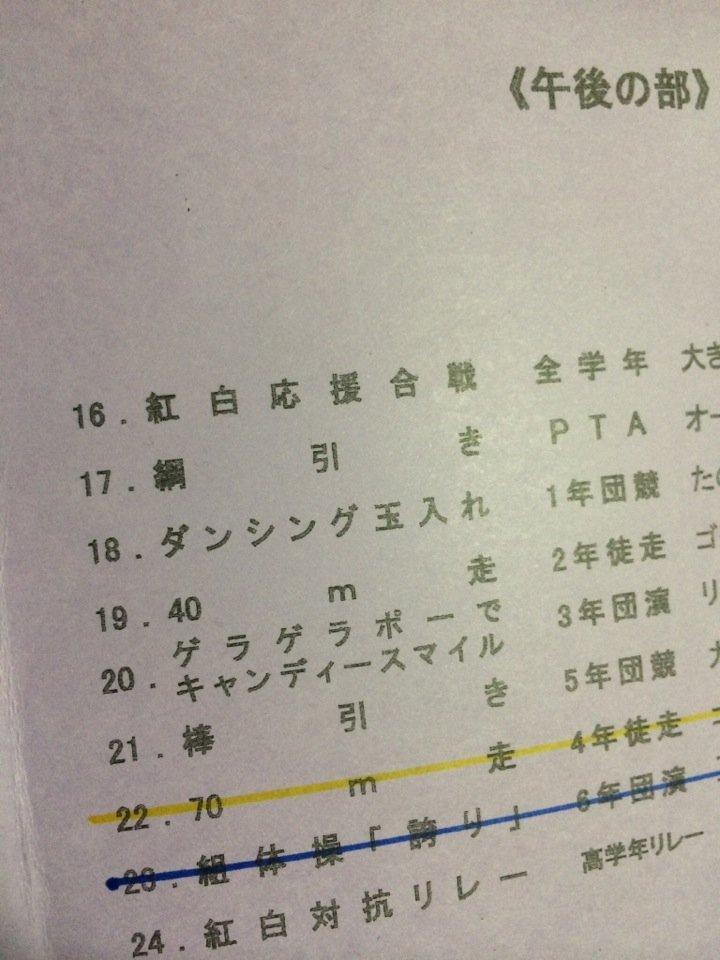 《午後の部》
16．紅白応援合戦 全学年 大き
17．綱引き PTA オー
18．ダンシング玉入れ 1年団競 たの
19．40m走 2年徒走 ゴ
20．ゲラゲラポーで
キャンディースマイル 3年団演 リ
21．棒引き 5年団競
22．70m走 4年徒走
23．組体操「誇り」 6年団演
24．紅白対抗リレー 高学年リレー